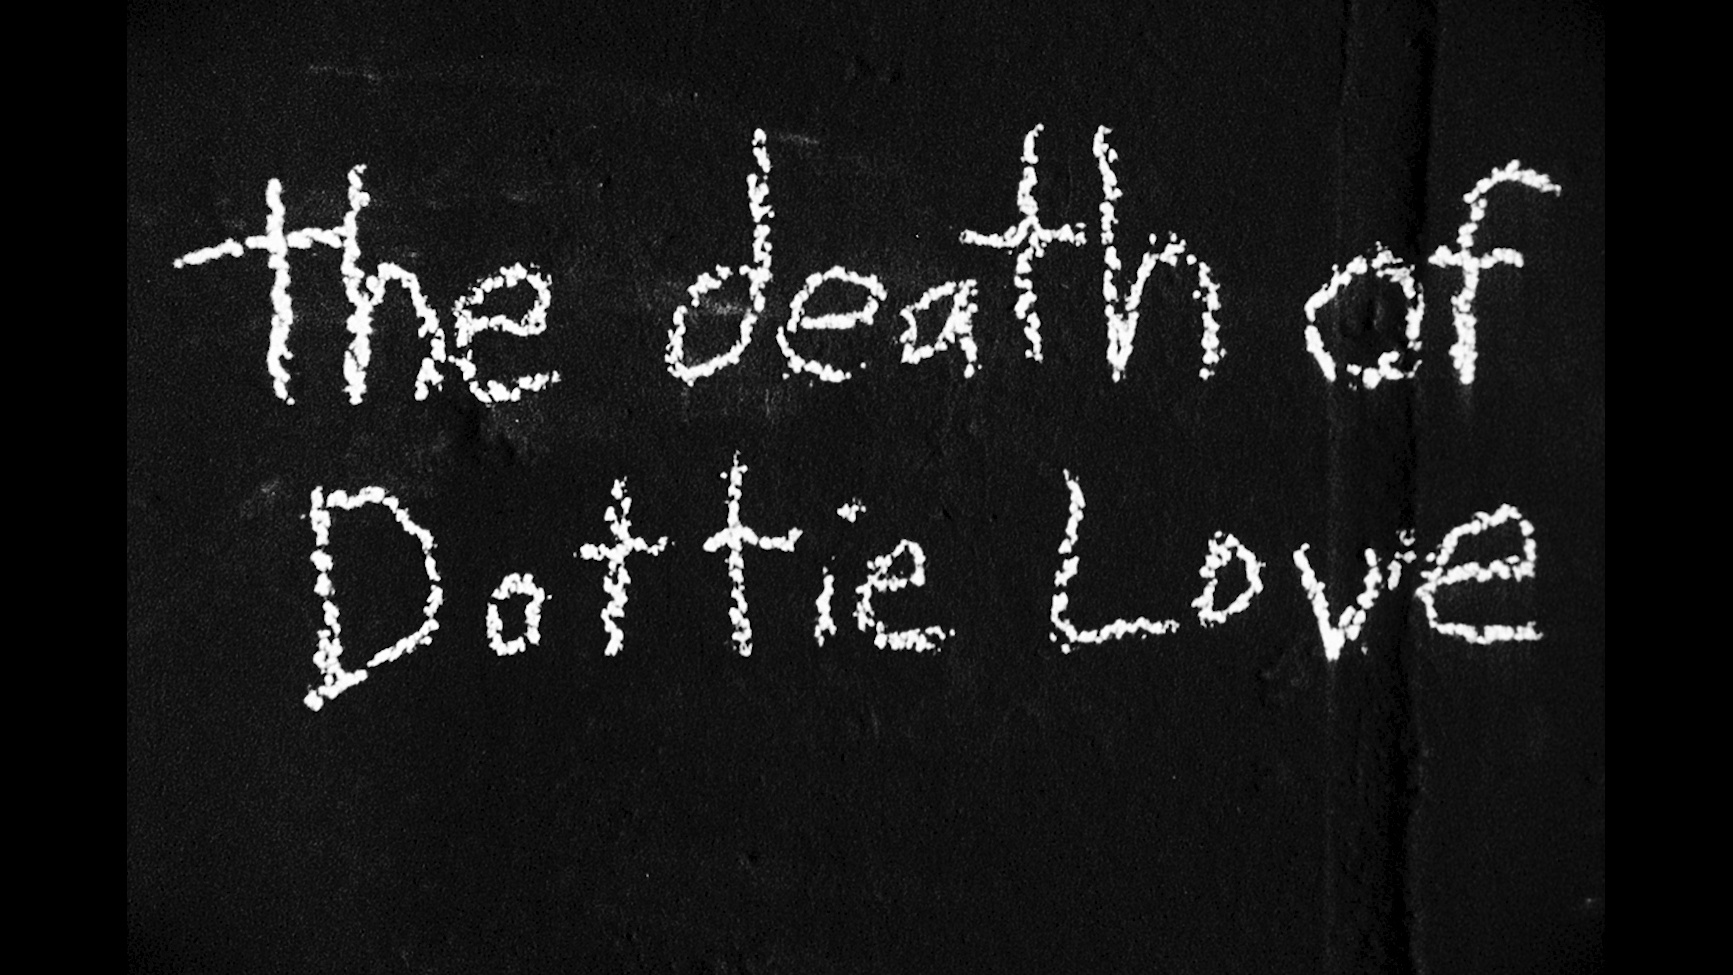 the death of
Dottie Love